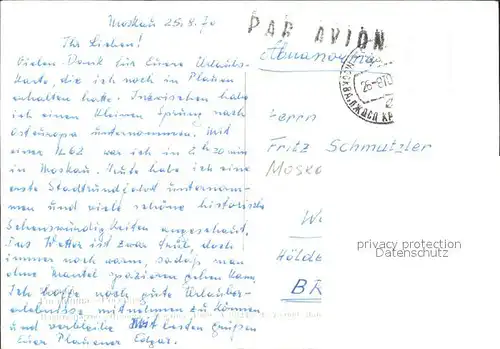 Moskau 25.8.70
PAR AVION
Ihr Lieben!
Vielen Dank für Eure Urlaubs-
karte, die ich noch in Plauen
erhalten hatte. Inzwischen habe
ich einen kleinen Sprung nach
Osteuropa unternommen. Mit
einer IL62 war ich in 2h 20 min
in Moskau. Heute habe ich eine
erste Stadtrundfahrt unternom-
men und viele schöne historische
Sehenswürdigkeiten angeschaut.
Das Wetter ist zwar trüb, doch
immer noch warm, sodaß man
ohne Mantel spazieren gehen kann.
Ich hoffe noch gute Urlauber-
erlebnisse mitnehmen zu können
und verbleibe mit besten Grüßen
Euer Plauener Edgar
МОСКВА
Herrn
Fritz Schmutzler
privacy protection
Datenschutz